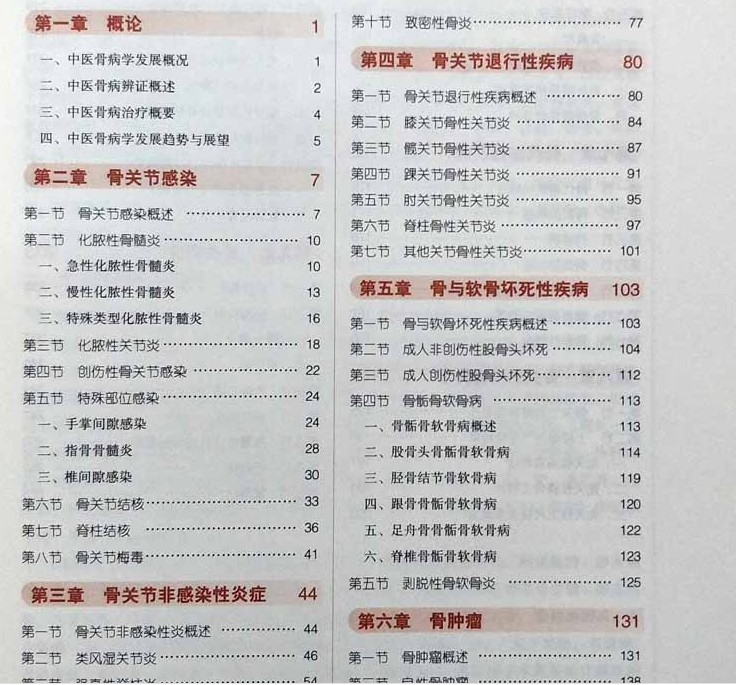 第一章 概论 1
一、中医骨病学发展概况 1
二、中医骨病辨证概述 2
三、中医骨病治疗概要 4
四、中医骨病学发展趋势与展望 5
第二章 骨关节感染 7
第一节 骨关节感染概述 ……………… 7
第二节 化脓性骨髓炎 ……………… 10
一、急性化脓性骨髓炎 10
二、慢性化脓性骨髓炎 13
三、特殊类型化脓性骨髓炎 16
第三节 化脓性关节炎 ……………… 18
第四节 创伤性骨关节感染 ……………… 22
第五节 特殊部位感染 ……………… 24
一、手掌间隙感染 24
二、指骨骨髓炎 28
三、椎间隙感染 30
第六节 骨关节结核 ……………… 33
第七节 脊柱结核 ……………… 36
第八节 骨关节梅毒 ……………… 41
第三章 骨关节非感染性炎症 44
第一节 骨关节非感染性炎概述 ………… 44
第二节 类风湿关节炎 ……………… 46
第三节 强直性脊柱炎 ……………… 54
第十节 致密性骨炎 ……………… 77
第四章 骨关节退行性疾病 80
第一节 骨关节退行性疾病概述 ………… 80
第二节 膝关节骨性关节炎 ……………… 84
第三节 髋关节骨性关节炎 ……………… 87
第四节 踝关节骨性关节炎 ……………… 91
第五节 肘关节骨性关节炎 ……………… 95
第六节 脊柱骨性关节炎 ……………… 97
第七节 其他关节骨性关节炎 …………… 101
第五章 骨与软骨坏死性疾病 103
第一节 骨与软骨坏死性疾病概述 ……… 103
第二节 成人非创伤性股骨头坏死 ……… 104
第三节 成人创伤性股骨头坏死 ………… 112
第四节 骨骺骨软骨病 ……………… 113
一、骨骺骨软骨病概述 113
二、股骨头骨骺骨软骨病 114
三、胫骨结节骨软骨病 119
四、跟骨骨骺骨软骨病 120
五、足舟骨骨骺骨软骨病 122
六、脊椎骨骺骨软骨病 123
第五节 剥脱性骨软骨炎 ……………… 125
第六章 骨肿瘤 131
第一节 骨肿瘤概述 ……………… 131
第二节 良性骨肿瘤 ……………… 138